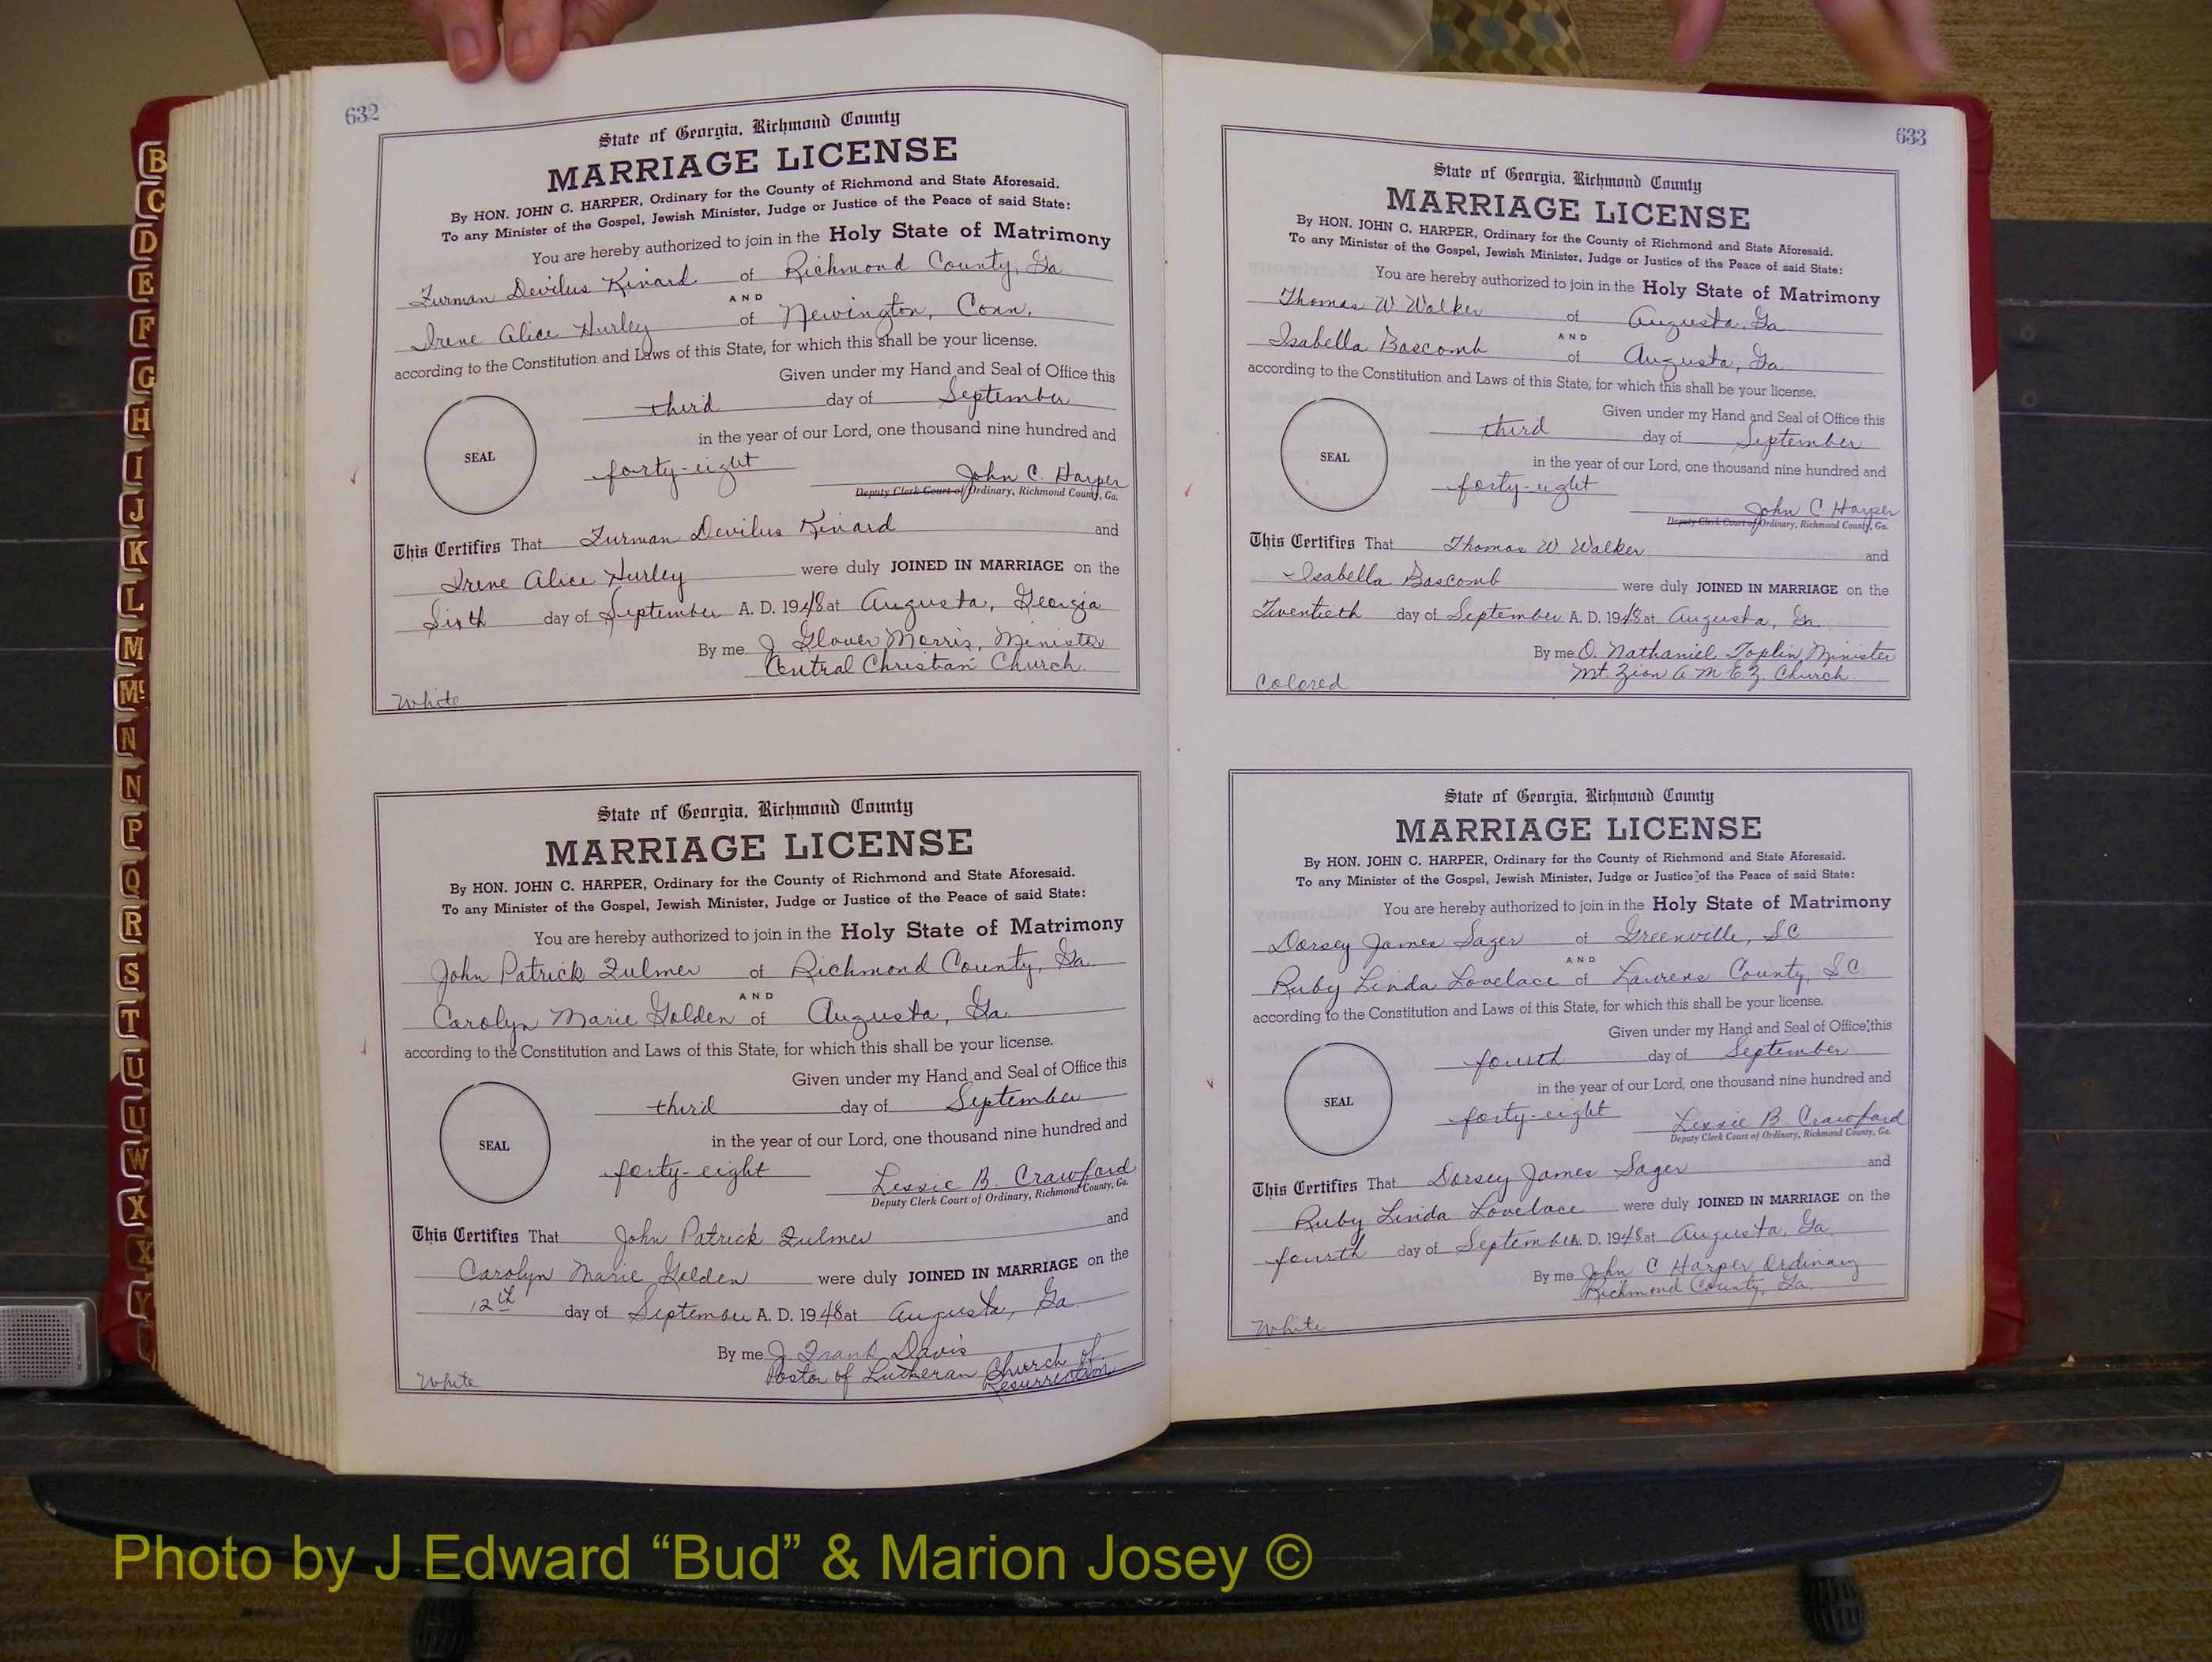 632
State of Georgia, Richmond County
MARRIAGE LICENSE
By HON. JOHN C. HARPER, Ordinary for the County of Richmond and State Aforesaid.
To any Minister of the Gospel, Jewish Minister, Judge or Justice of the Peace of said State:
You are hereby authorized to join in the Holy State of Matrimony
Furman Devilus Kinard of Richmond County, Ga.
AND
Irene Alice Hurley of Newington, Conn.
according to the Constitution and Laws of this State, for which this shall be your license.
Given under my Hand and Seal of Office this
third day of September
in the year of our Lord, one thousand nine hundred and
SEAL
forty-eight John C. Harper
Deputy Clerk Court of Ordinary, Richmond County, Ga.
This Certifies That Furman Devilus Kinard and
Irene Alice Hurley were duly JOINED IN MARRIAGE on the
Sixth day of September A. D. 1948 at Augusta, Georgia
By me J Glover Morris, Minister
Central Christian Church.
White
State of Georgia, Richmond County
MARRIAGE LICENSE
By HON. JOHN C. HARPER, Ordinary for the County of Richmond and State Aforesaid.
To any Minister of the Gospel, Jewish Minister, Judge or Justice of the Peace of said State:
You are hereby authorized to join in the Holy State of Matrimony
John Patrick Fulmer of Richmond County, Ga.
AND
Carolyn Marie Golden of Augusta, Ga.
according to the Constitution and Laws of this State, for which this shall be your license.
Given under my Hand and Seal of Office this
third day of September
in the year of our Lord, one thousand nine hundred and
SEAL
forty-eight Lessie B. Crawford
Deputy Clerk Court of Ordinary, Richmond County, Ga.
This Certifies That John Patrick Fulmer and
Carolyn Marie Golden were duly JOINED IN MARRIAGE on the
12th day of September A. D. 1948 at Augusta, Ga.
By me J. Frank Davis
Pastor of Lutheran Church of
Resurrection
White
633
State of Georgia, Richmond County
MARRIAGE LICENSE
By HON. JOHN C. HARPER, Ordinary for the County of Richmond and State Aforesaid.
To any Minister of the Gospel, Jewish Minister, Judge or Justice of the Peace of said State:
You are hereby authorized to join in the Holy State of Matrimony
Thomas W Walker of Augusta, Ga
AND
Isabella Bascomb of Augusta, Ga
according to the Constitution and Laws of this State, for which this shall be your license.
Given under my Hand and Seal of Office this
third day of September
in the year of our Lord, one thousand nine hundred and
SEAL
forty-eight John C Harper
Deputy Clerk Court of Ordinary, Richmond County, Ga.
This Certifies That Thomas W Walker and
Isabella Bascomb were duly JOINED IN MARRIAGE on the
Twentieth day of September A. D. 1948 at Augusta, Ga.
By me O. Nathaniel Toplin Minister
Mt. Zion A M E Z. Church.
Colored
State of Georgia, Richmond County
MARRIAGE LICENSE
By HON. JOHN C. HARPER, Ordinary for the County of Richmond and State Aforesaid.
To any Minister of the Gospel, Jewish Minister, Judge or Justice of the Peace of said State:
You are hereby authorized to join in the Holy State of Matrimony
Dorsey James Sager of Greenville, SC
AND
Ruby Linda Lovelace of Laurens County, SC
according to the Constitution and Laws of this State, for which this shall be your license.
Given under my Hand and Seal of Office this
fourth day of September
in the year of our Lord, one thousand nine hundred and
SEAL
forty-eight Lessie B. Crawford
Deputy Clerk Court of Ordinary, Richmond County, Ga.
This Certifies That Dorsey James Sager and
Ruby Linda Lovelace were duly JOINED IN MARRIAGE on the
fourth day of September A. D. 1948 at Augusta, Ga.
By me John C Harper Ordinary
Richmond County, Ga.
White
B
C
D
E
F
G
H
I
J
K
L
M
Mc
N
N
P
Q
R
S
T
U
U
W
X
X
Y
Photo by J Edward “Bud” & Marion Josey ©